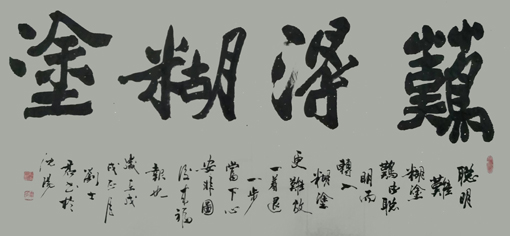 難得糊塗
聰明
難
糊塗
難由聰
明而
轉入
糊塗
更難放
一着退
一步
當下心
安非圖
後來福
報也
歲
月
劉士
於
沈陽